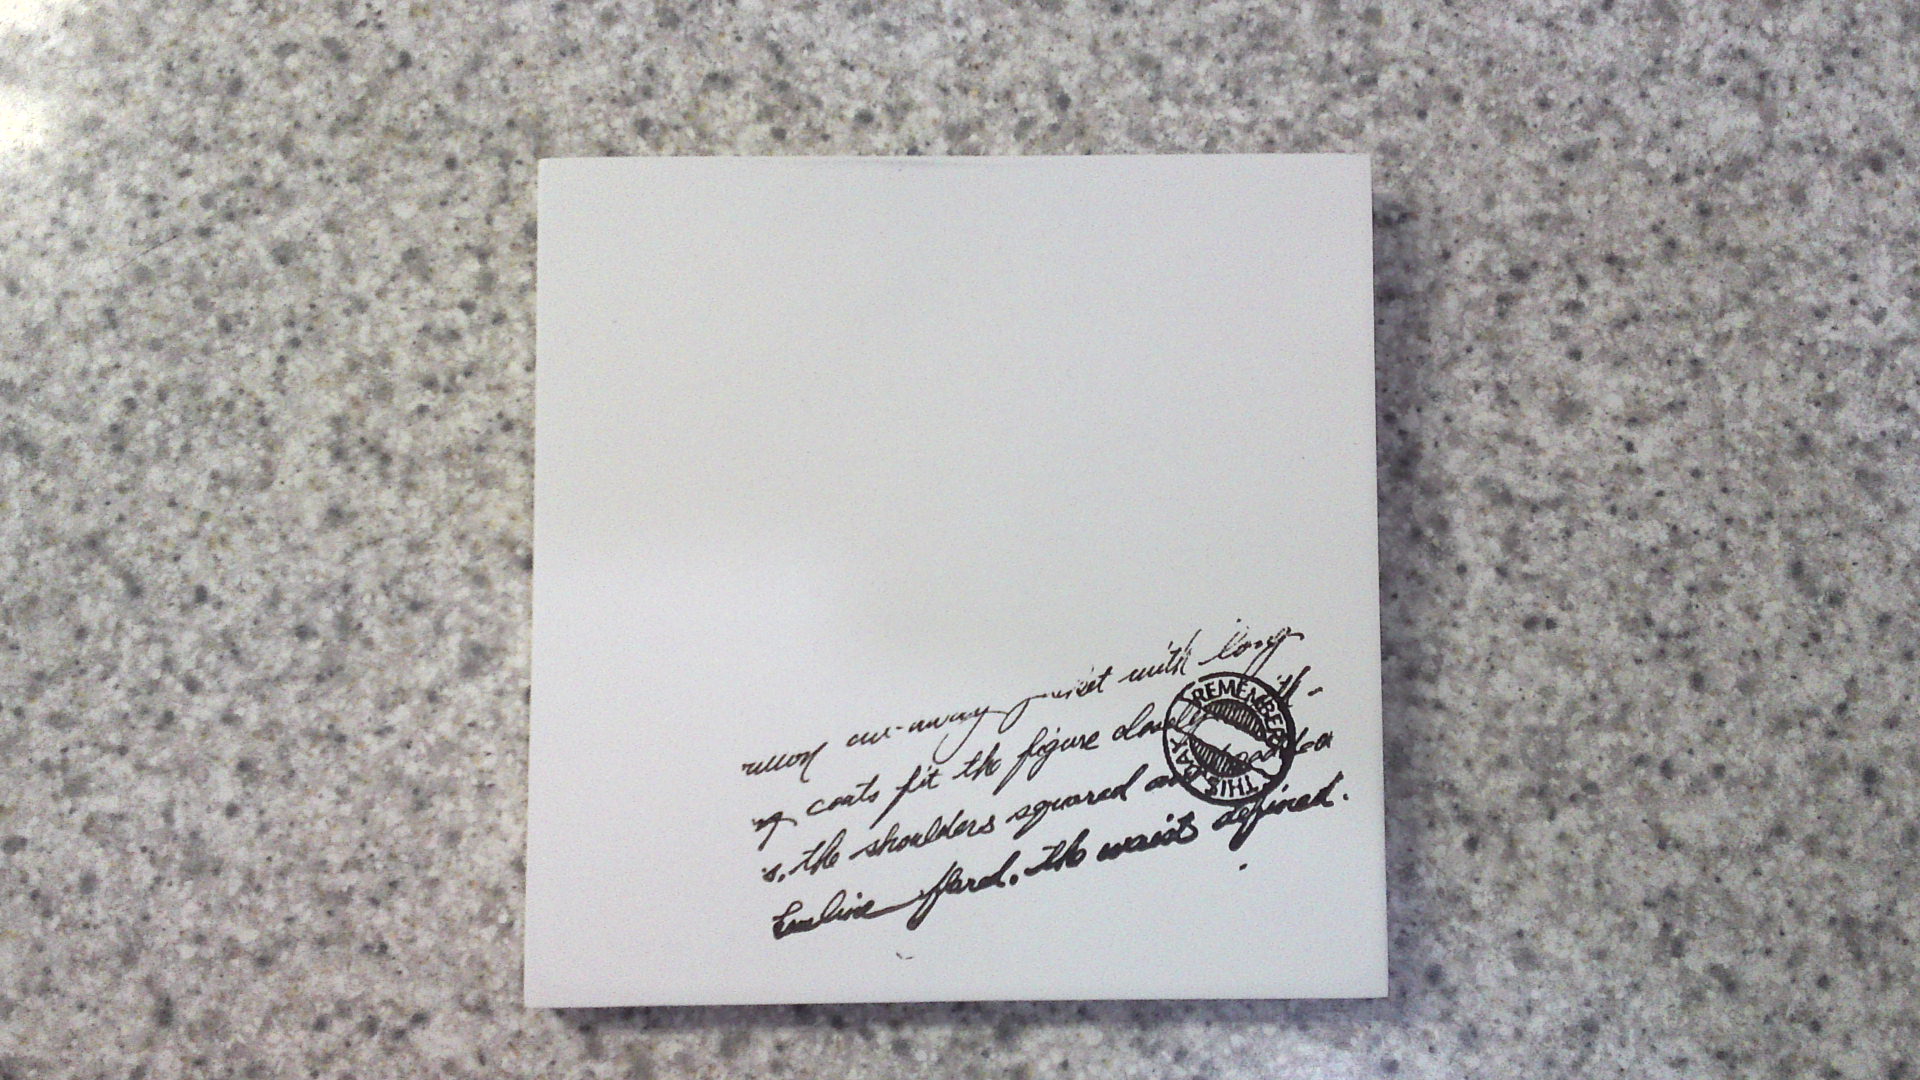 cut-away jacket with long
coats fit the figure closely with
s, the shoulders squared and
flared, the waist defined.
REMEMBER THIS DAY